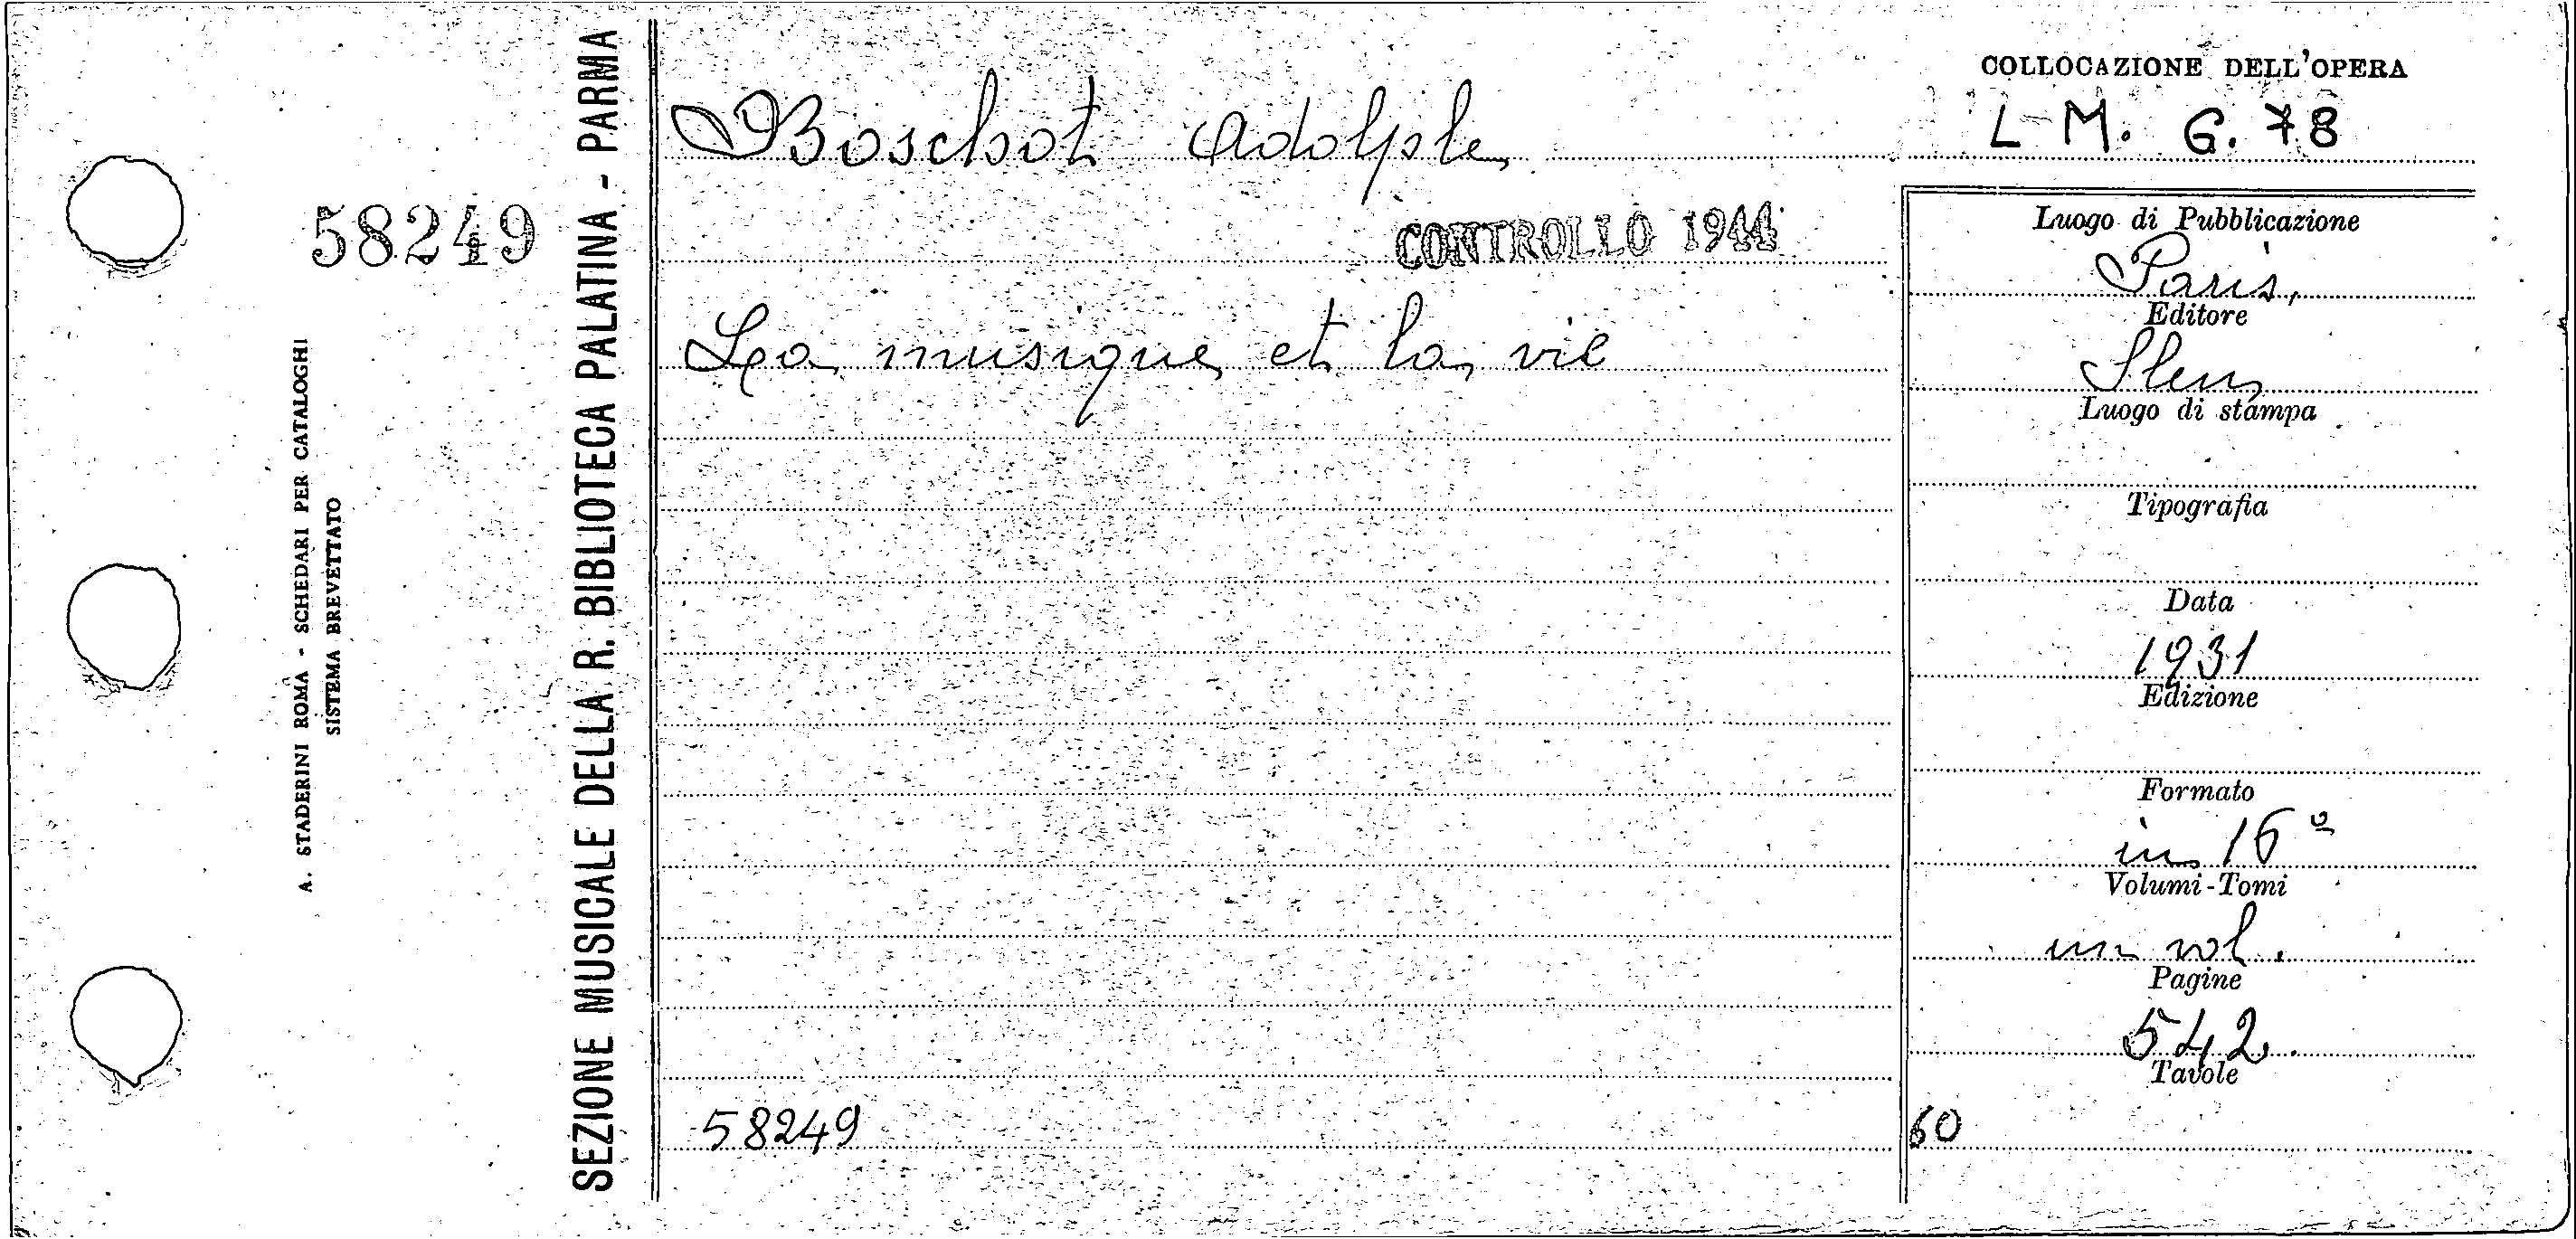 COLLOCAZIONE DELL'OPERA
L M. G. 78
Boschot Adolphe
58249
CONTROLLO 1944
La musique et la vie
Luogo di Pubblicazione
Paris,
Editore
Luogo di stampa
Tipografia
Data
1931
Edizione
Formato
in 16º
Volumi-Tomi
un vol.
Pagine
542.
Tavole
60
58249
A. STADERINI ROMA - SCHEDARI PER CATALOGHI
SISTEMA BREVETTATO
SEZIONE MUSICALE DELLA R. BIBLIOTECA PALATINA - PARMA